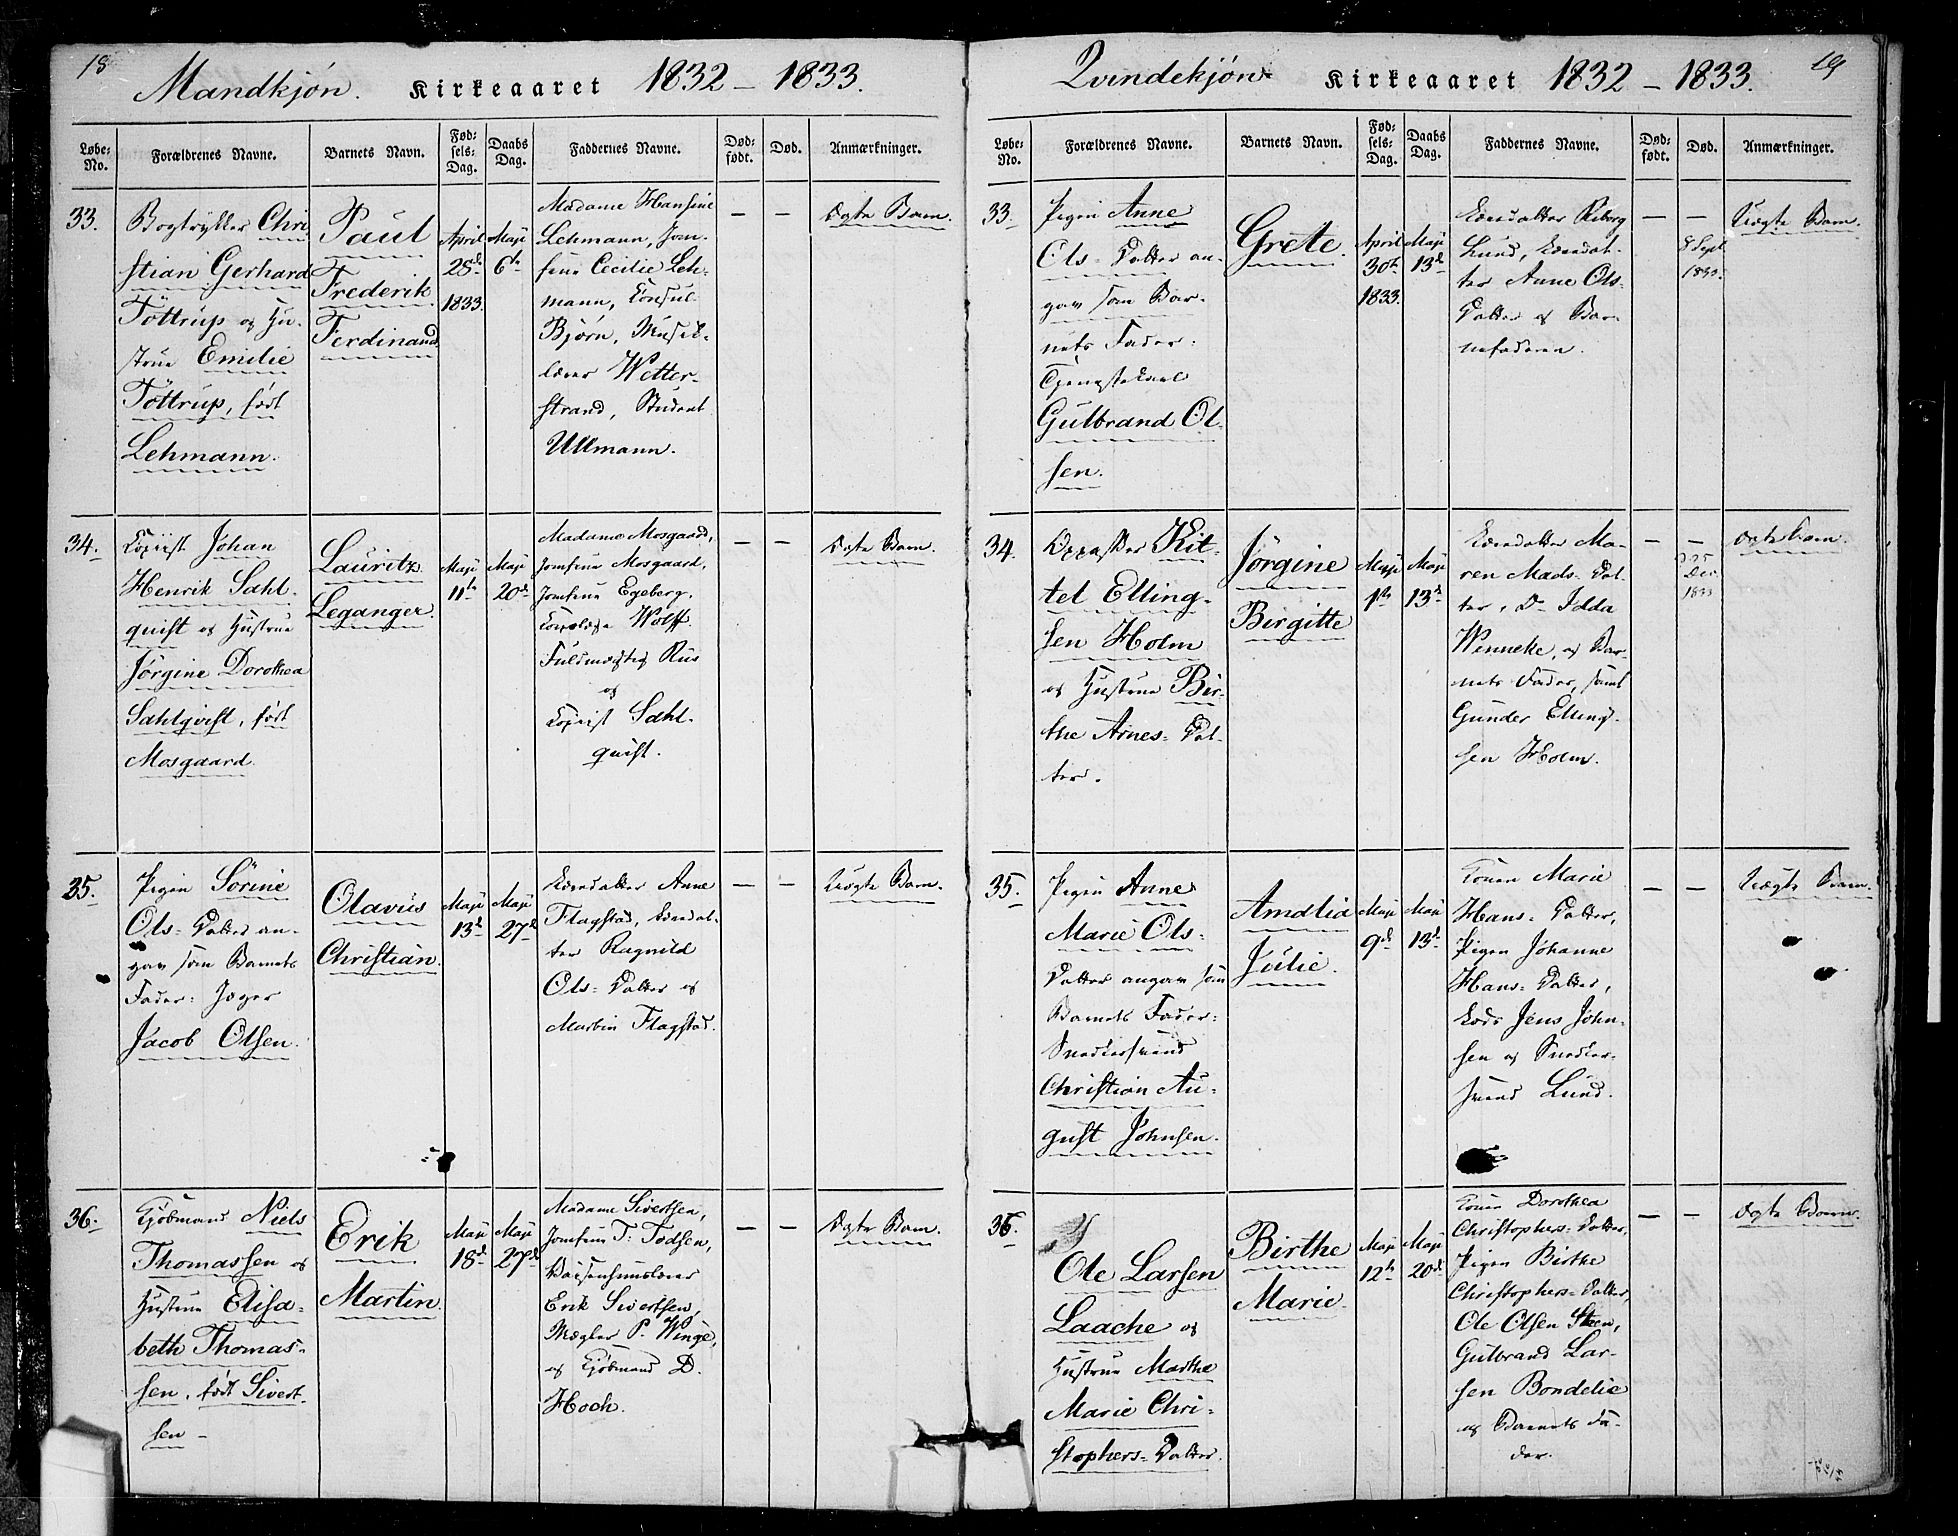 18
Mandkjøn. Kirkeaaret 1832 – 1833.
Løbe-No.
Forældrenes Navne.
Barnets Navn.
Fødselsdag.
Daabs Dag.
Faddernes Navne.
Dødfødt.
Død.
Anmærkninger.
33.
Bogtrykker Chri
stian Gerhard
Töttrup og Hu-
strue Emilie
Töttrup, født
Lehmann.
Paul
Frederik
Ferdinand
April
28de
1833.
Maji
6te
Madame Hansine
Lehmann, Jom-
frue Cecilie Leh-
mann, Consul
Bjørn, Musik-
lærer Wetter-
strand, Student
Ullmann.
– –
Ægte Barn.
34.
Copiist Johan
Henrik Sahl-
quist og Hustrue
Jørgine Dorothea
Sahlqvist, født
Mosgaard.
Lauritz
Leganger.
Maji
11te
Maji
20de
Madame Mosgaard,
Jomfrue Mosgaard,
Jomfrue Egeberg,
Wolff
Fuldmægtig Rus
og
Copiist Sahl-
quist.
– –
Ægte Barn.
35.
Pigen Sörine
Ols-Datter an-
gav som Barnets
Fader: Jæger
Jacob Olsen.
Olavus
Christian.
Maji
13de
Maji
27de
Anne
Flagstad,
Ragnild
Ols-Datter og
Martin Flagstad.
– –
Uægte Barn.
36.
Kjøbmand Niels
Thomassen og
Hustrue Elisa-
beth Thomas-
sen, født Sivert-
sen –
Erik
Martin.
Maji
18de
Maji
27de
Madame Sivertsen,
Jomfrue T. Todsen,
Erik Sivertsen,
Mægler P. Winge,
og Kjøbmand D.
Hoch.
– –
Ægte Barn.
19
Qvindekjøn Kirkeaaret 1832 – 1833.
Løbe-No.
Forældrenes Navne.
Barnets Navn.
Fødselsdag.
Daabs Dag.
Faddernes Navne.
Dødfødt.
Død.
Anmærkninger.
33.
Pigen Anne
Ols-Datter an-
gav som Bar-
nets Fader:
Tjenestekarl
Gulbrand Ol-
sen.
Grete.
April
30te
1833.
Maji
13de
Lund,
Anne Ols-
Datter og Bar-
nefaderen.
– –
8 Sept
1833.
Uægte Barn.
34.
Kit-
tel Elling-
sen Holm
og Hustrue Bir-
the Arnes-Dat-
ter.
Jørgine
Birgitte
Maji
1ste
Maji
13de
Ma-
ren Mads-Dat-
ter, Do Idda
Wenneke, og Bar-
nets Fader, samt
Gunder Elling-
sen Holm.
– –
25
Dec.
1833
Ægte Barn.
35.
Pigen Anne
Marie Ols-
Datter angav som
Barnets Fader:
Snedkersvend
Christian Au-
gust Johnsen.
Amalia
Julie.
Maji
9de
Maji
13de
Konen Marie
Hans-Datter,
Pigen Johanne
Hans-Datter,
Jens John-
sen og Snedker-
svend Lund.
– –
Uægte Barn.
36.
Ole Larsen
Laache og
Hustrue Marthe
Marie Chri-
stophers-Datter.
Birthe
Marie.
Maji
12te
Maji
20de
Konen Dorothea
Christophers-Datter,
Pigen Birthe
Christophers-Datter,
Ole Olsen Steen,
Gulbrand Lar-
sen Bondelie
og Barnets Fa-
der.
– –
Ægte Barn.